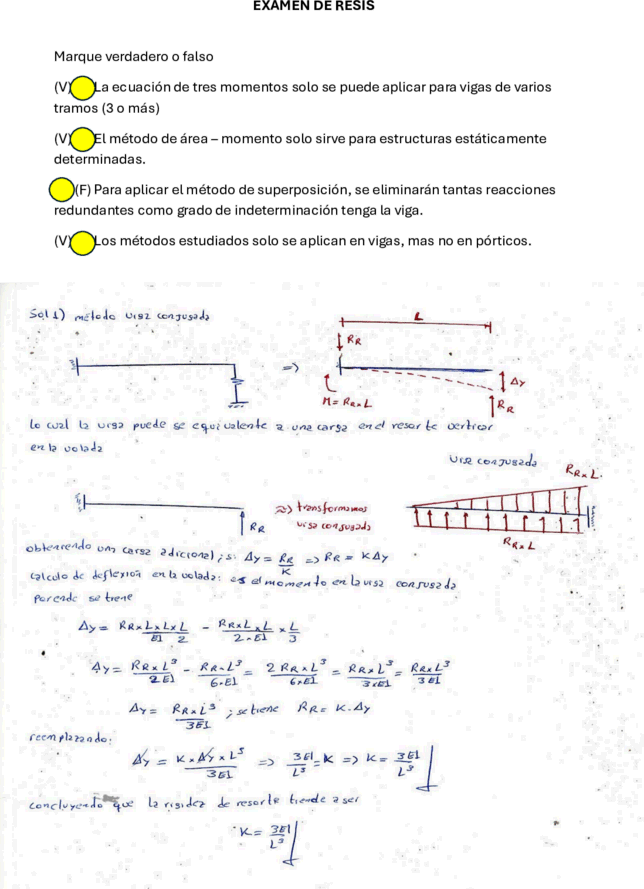 EXAMEN DE RESIS
Marque verdadero o falso
(V) La ecuación de tres momentos solo se puede aplicar para vigas de varios
tramos (3 o más)
(V) El método de área – momento solo sirve para estructuras estáticamente
determinadas.
(F) Para aplicar el método de superposición, se eliminarán tantas reacciones
redundantes como grado de indeterminación tenga la viga.
(V) Los métodos estudiados solo se aplican en vigas, mas no en pórticos.
Sol 1) método viga conjugada
L
RR
=>
Δy
M = RR x L
RR
lo cual la viga puede se equivalente a una carga en el resorte vertical
en la volada
viga conjugada
RR x L
=> transformamos
viga conjugada
RR
RR x L
obteniendo una carga adicional; si Δy = RR/K => RR = KΔy
calculo de deflexión en la volada: es el momento en la viga conjugada
por ende se tiene
Δy = RR x L x L x L / EI 2 - RR x L x L / 2 x EI x L/3
Δy = RR x L³ / 2EI - RR x L³ / 6xEI = 2 RR x L³ / 6xEI = RR x L³ / 3xEI = RR x L³ / 3EI
Δy = RR x L³ / 3EI ; se tiene RR = K · Δy
reemplazando:
Δy = K x Δy x L³ / 3EI => 3EI / L³ = K => K = 3EI / L³
concluyendo que la rigidez de resorte tiende a ser
K = 3EI / L³